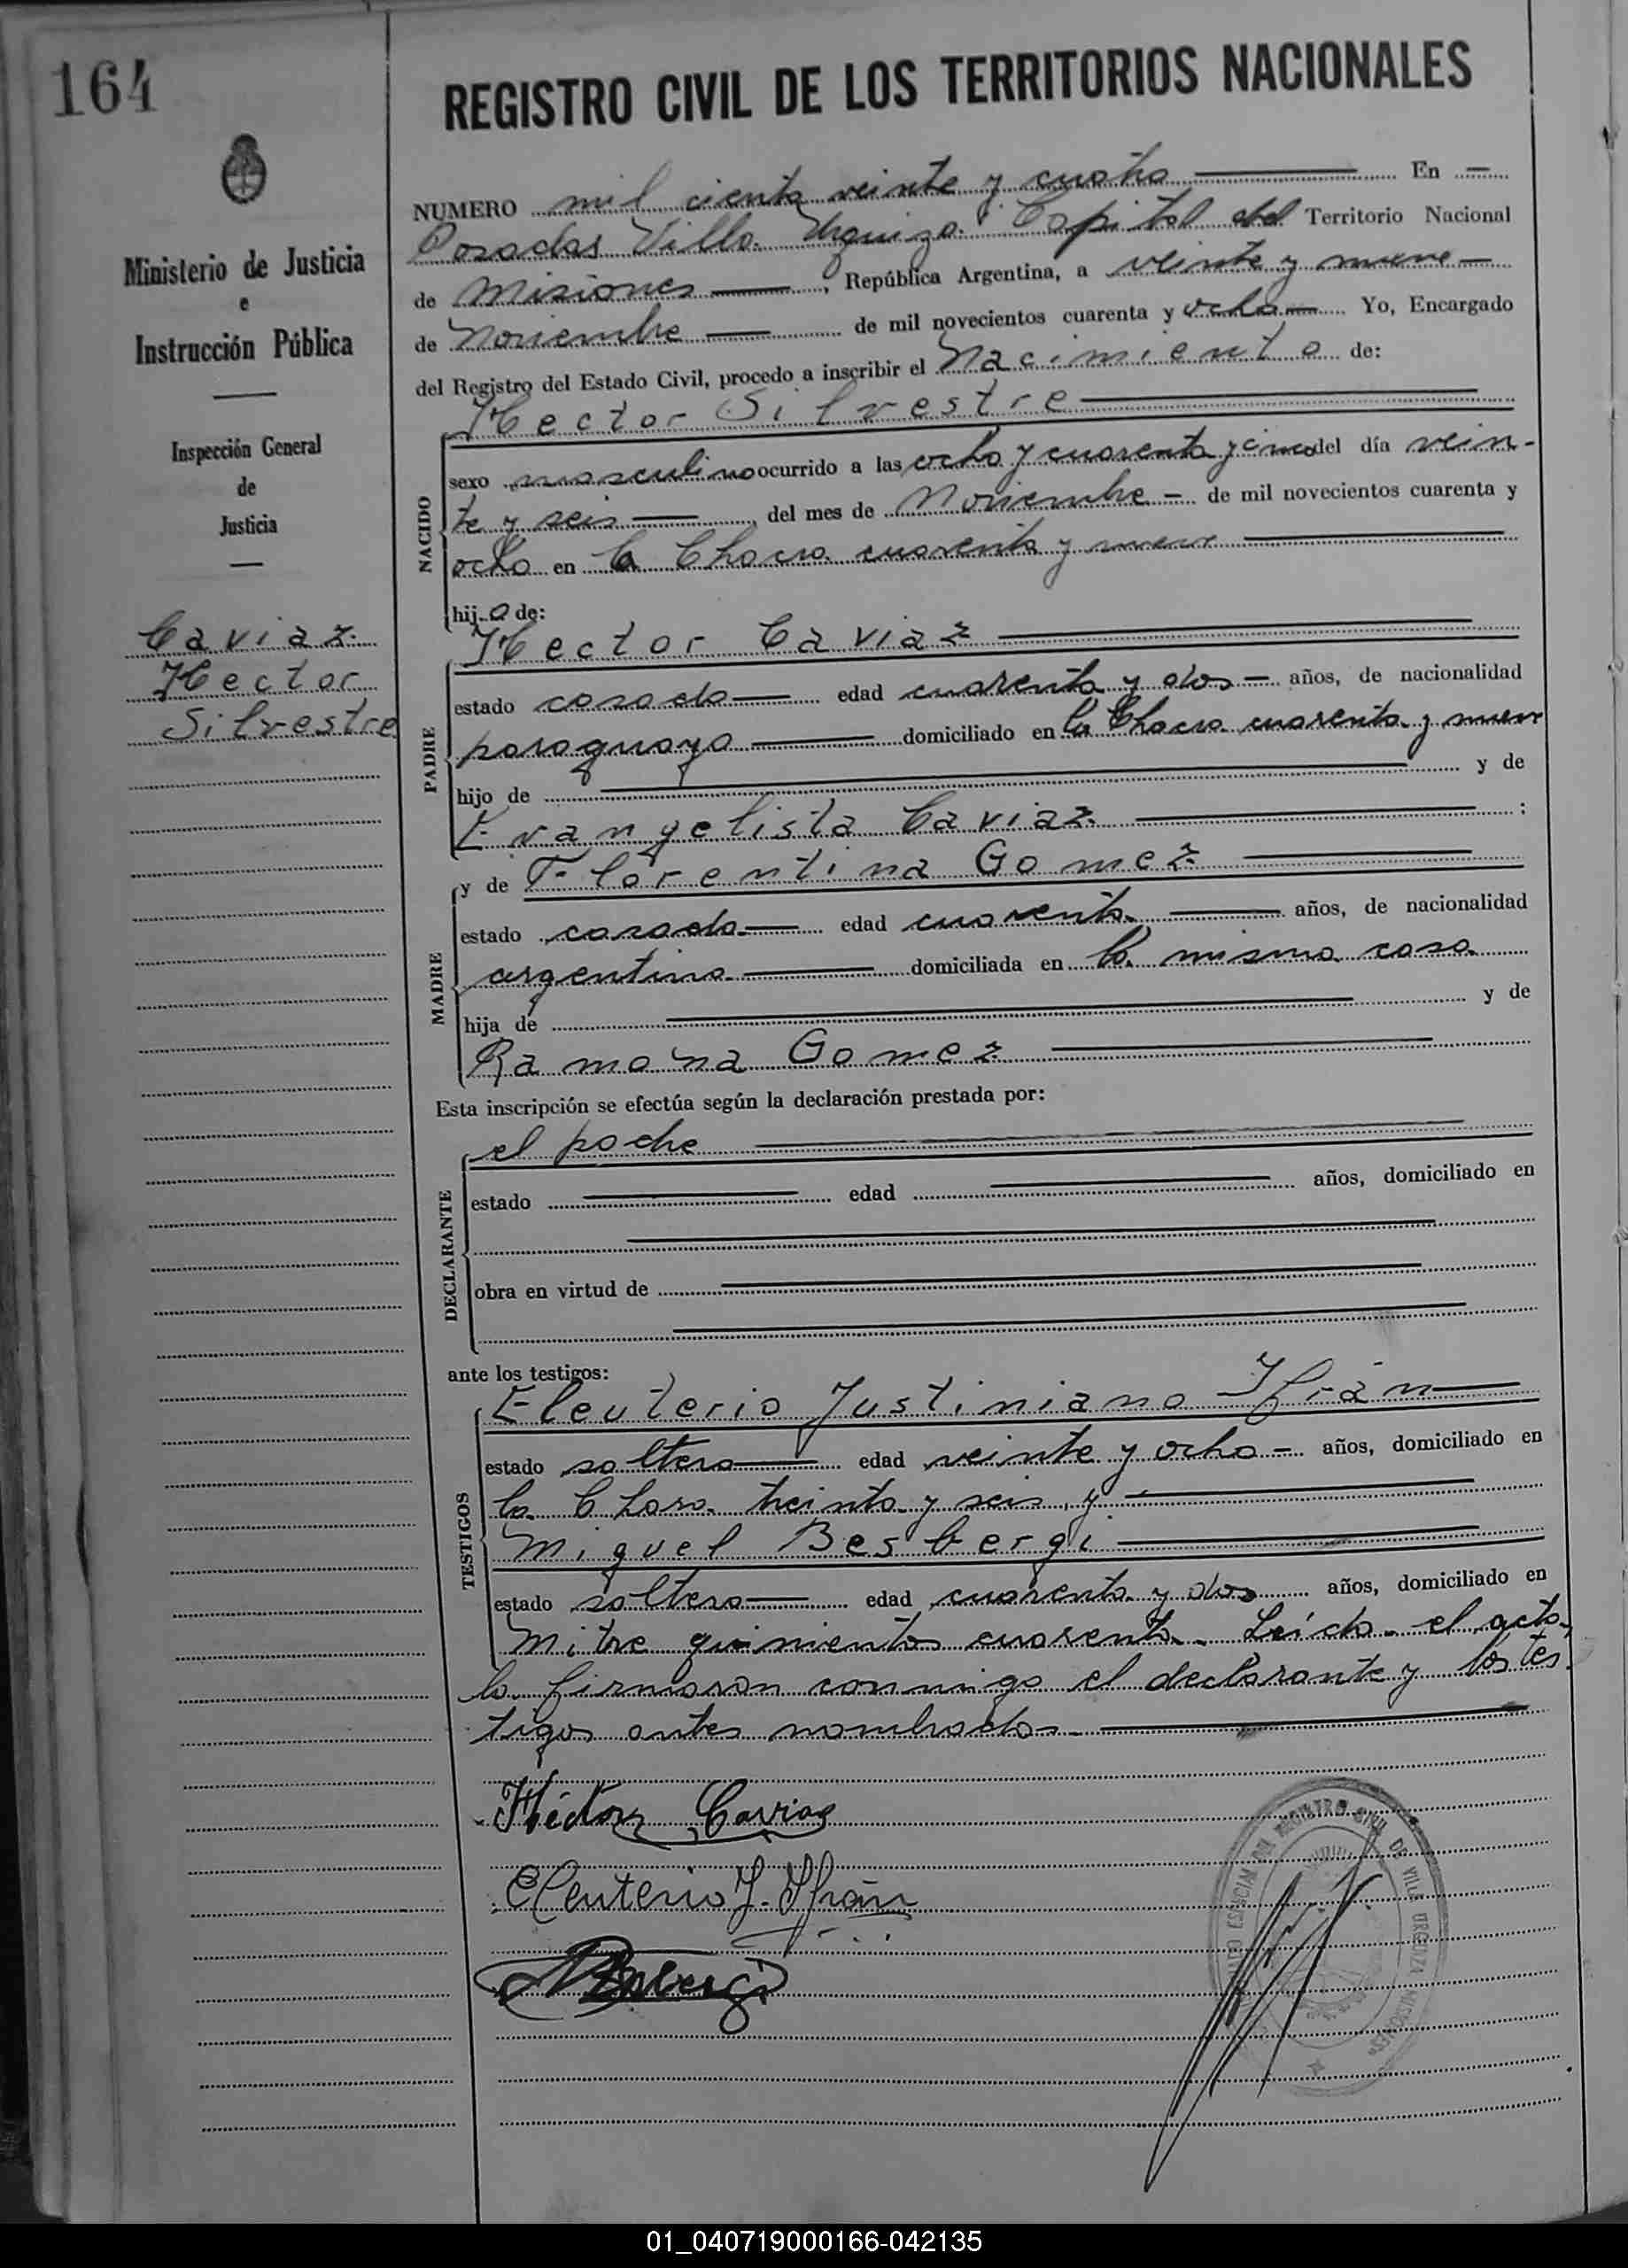 164
REGISTRO CIVIL DE LOS TERRITORIOS NACIONALES
Ministerio de Justicia
e
Instrucción Pública
Inspección General
de
Justicia
Caviaz
Hector
Silvestre
NUMERO mil ciento veinte y cuatro En
Posadas Villa Urquiza Capital del Territorio Nacional
de Misiones, República Argentina, a veinte y nueve
de Noviembre de mil novecientos cuarenta y ocho Yo, Encargado
del Registro del Estado Civil, procedo a inscribir el Nacimiento de:
Hector Silvestre
NACIDO
sexo masculino ocurrido a las ocho y cuarenta y cinco del día vein-
te y seis, del mes de Noviembre de mil novecientos cuarenta y
ocho en la Chacra cuarenta y nueve
hijo de:
Hector Caviaz
PADRE
estado casado edad cuarenta y dos años, de nacionalidad
paraguaya domiciliado en la Chacra cuarenta y nueve
hijo de y de
Evangelista Caviaz :
y de Florentina Gomez
MADRE
estado casada edad cuarenta años, de nacionalidad
argentina domiciliada en la misma casa
hija de y de
Ramona Gomez
Esta inscripción se efectúa según la declaración prestada por:
el padre
DECLARANTE
estado edad años, domiciliado en
obra en virtud de
ante los testigos:
Eleuterio Justiniano Ifrán
TESTIGOS
estado soltero edad veinte y ocho años, domiciliado en
la Chara treinta y seis, y
Miguel Besbergi
estado soltero edad cuarenta y dos años, domiciliado en
Mitre quinientos cuarenta. Leída el acta,
la firmaron conmigo el declarante y los tes
tigos antes nombrados.
Héctor Caviaz
Eleuterio J. Ifrán
REGISTRO CIVIL DE VILLA URQUIZA MISIONES
01_040719000166-042135